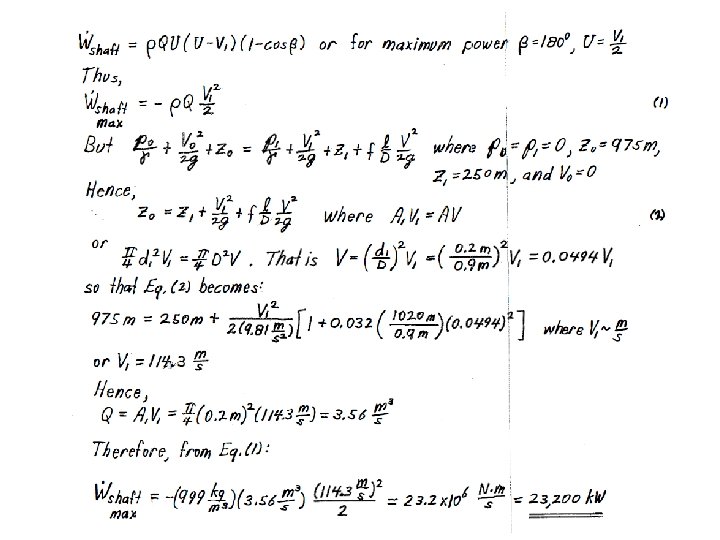 Ẇshaft = ρQU(U-V₁)(1-cosβ) or for maximum power β=180°, U = V₁/2
Thus,
Ẇshaft max = - ρQ V₁²/2 (1)
But p₀/γ + V₀²/2g + z₀ = p₁/γ + V₁²/2g + z₁ + f l/D V²/2g where p₀ = p₁ = 0, z₀ = 975m,
z₁ = 250m, and V₀ = 0
Hence,
z₀ = z₁ + V₁²/2g + f l/D V²/2g where A₁V₁ = AV (2)
or π/4 d₁²V₁ = π/4 D²V. That is V = (d₁/D)²V₁ = (0.2m/0.9m)²V₁ = 0.0494 V₁
so that Eq.(2) becomes:
975m = 250m + V₁²/2(9.81 m/s²) [1 + 0.032 (1020m/0.9m)(0.0494)²] where V₁ ~ m/s
or V₁ = 114.3 m/s
Hence,
Q = A₁V₁ = π/4 (0.2m)²(114.3 m/s) = 3.56 m³/s
Therefore, from Eq.(1):
Ẇshaft max = -(999 kg/m³)(3.56 m³/s) (114.3 m/s)²/2 = 23.2x10⁶ N·m/s = 23,200 kW